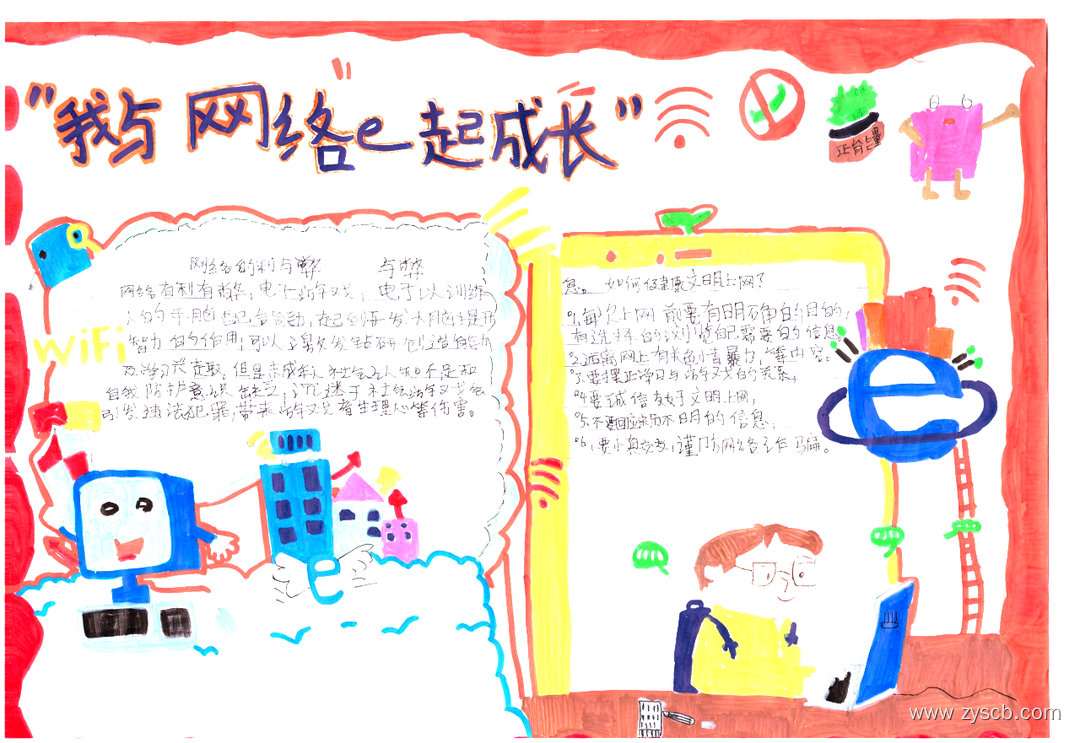 "我与网络e起成长"
正能量
网络的利与弊 与弊
网络有利有弊,电子游戏,电子以训练
人的手脑
智力的作用,可以
及学习
但是未成年人社会认知不足和
自我防护意识缺乏,沉迷于社会游戏会
引发违法犯罪,带来游戏者生理心等伤害。
WiFi
息。如何健康文明上网了
1.每次上网前要有明确的目的,
有选择的浏览自己需要的信息
2.远离网上有关色情暴力等内容。
3.要摆正学习与游戏的关系,
4要诚信友好文明上网,
5.不要回应来历不明的信息,
6,要小心交友,谨防网络诈骗。
e
e
www.zyscb.com